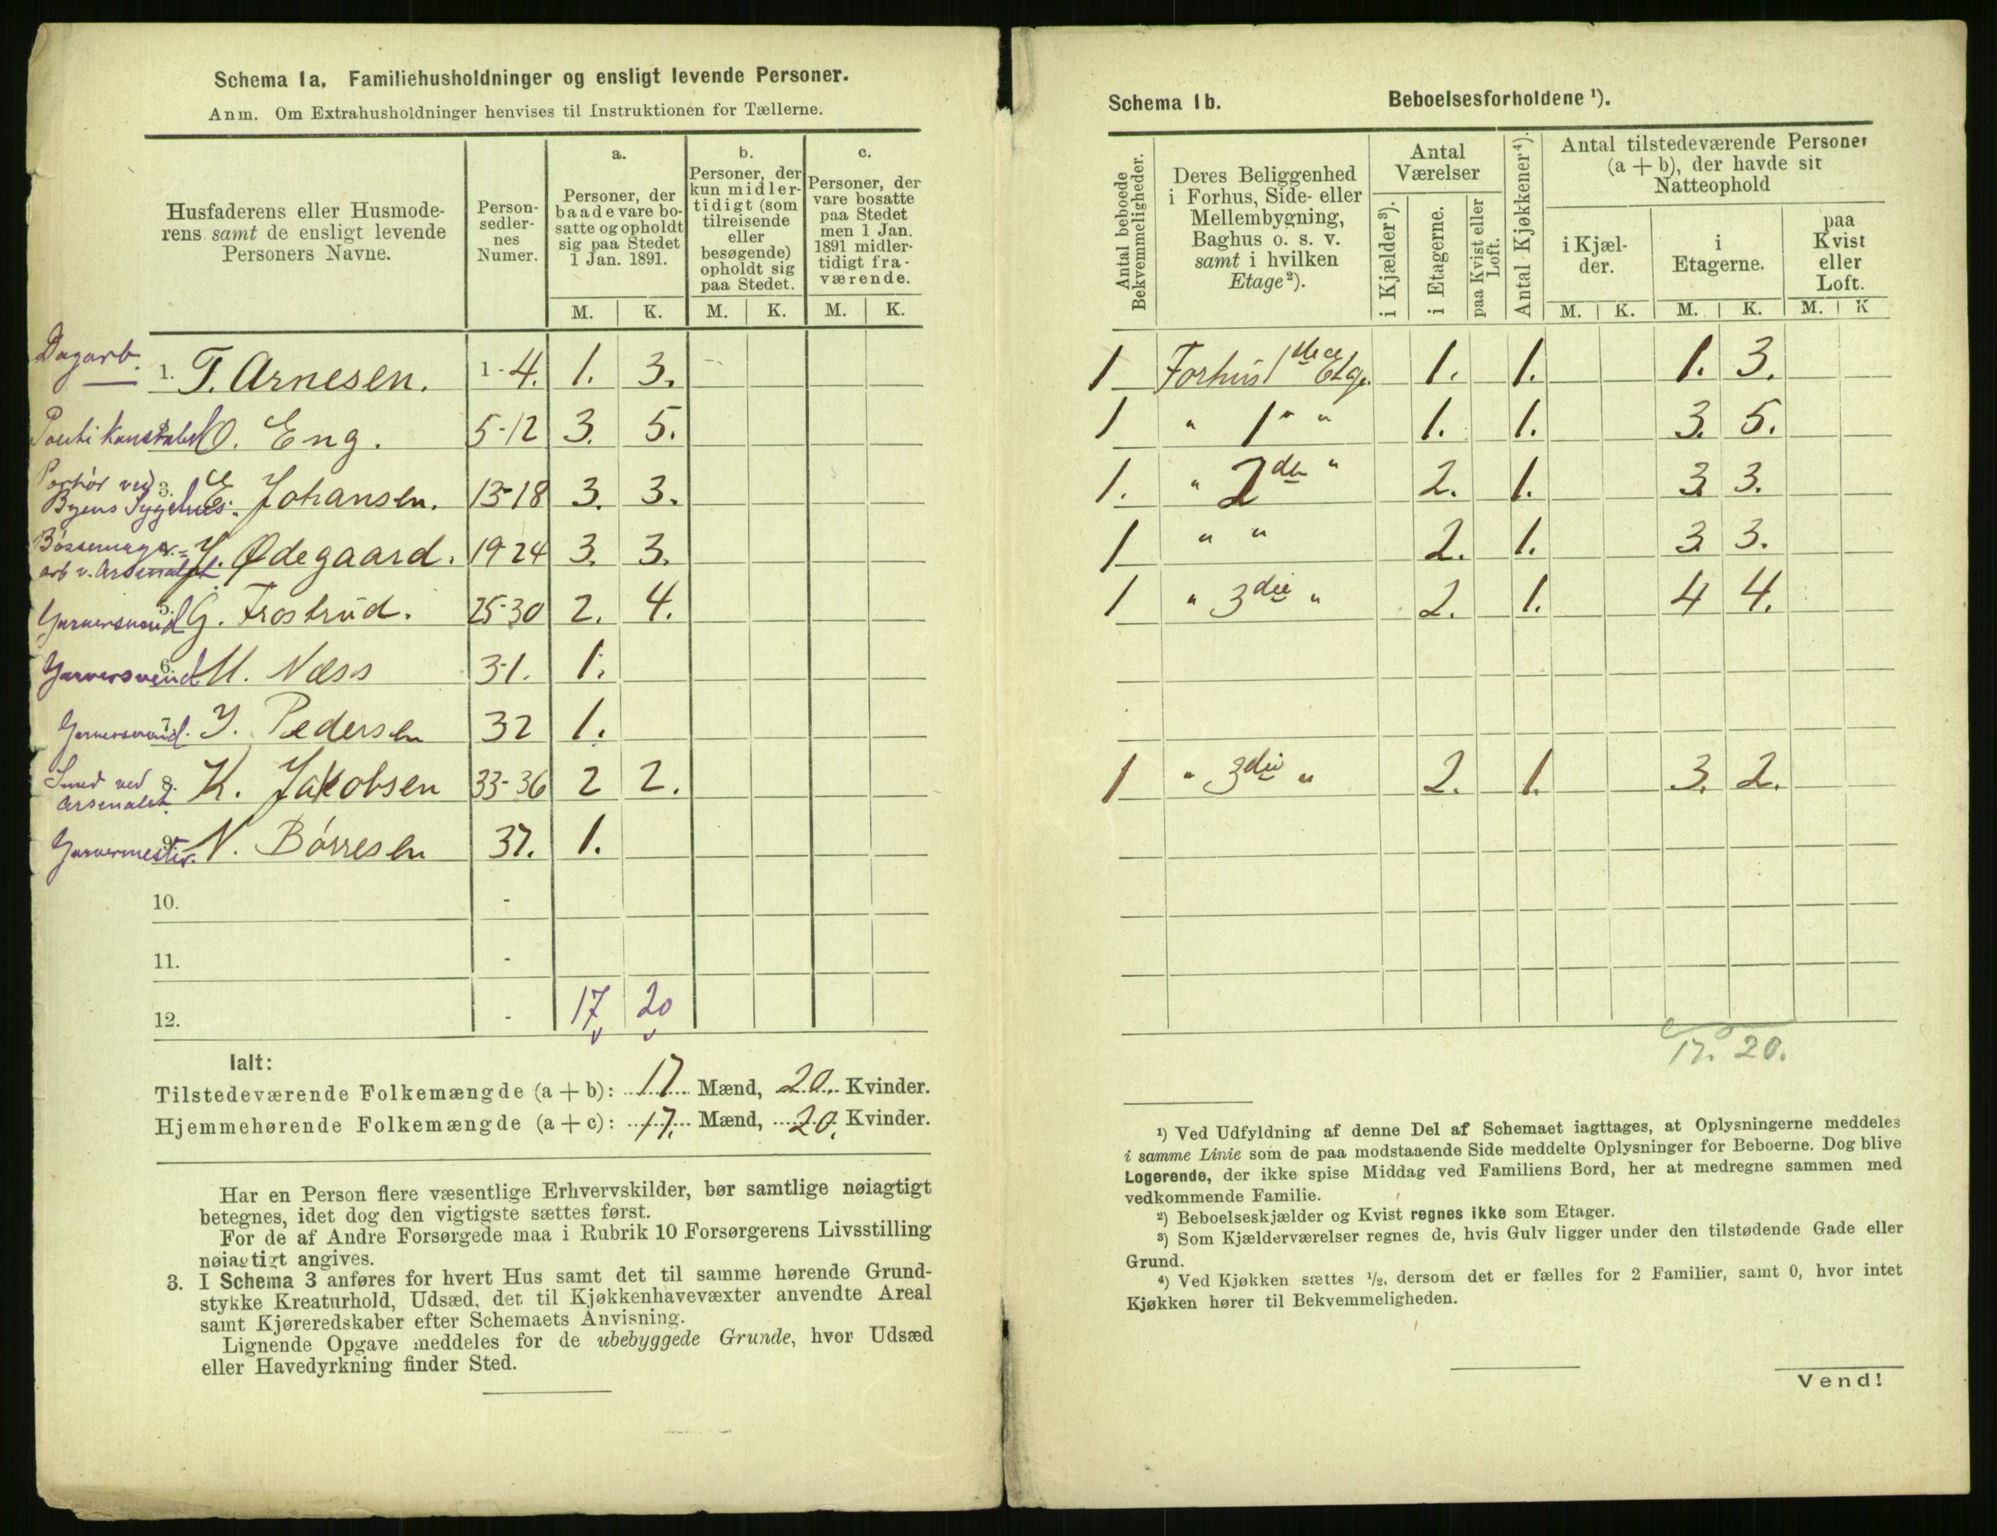 Schema 1a. Familiehusholdninger og ensligt levende Personer.
Anm. Om Extrahusholdninger henvises til Instruktionen for Tællerne.
Husfaderens eller Husmode-
rens samt de ensligt levende
Personers Navne.
Person-
sedler-
nes
Numer.
a.
Personer, der
baade vare bo-
satte og opholdt
sig paa Stedet
1 Jan. 1891.
b.
Personer, der
kun midler-
tidigt (som
tilreisende
eller
besøgende)
opholdt sig
paa Stedet.
c.
Personer, der
vare bosatte
paa Stedet
men 1 Jan.
1891 midler-
tidigt fra-
værende.
M. K. M. K. M. K.
Dagarb. 1. T. Arnesen. 1-4. 1. 3.
Politi Konstabel O. Eng. 5-12 3. 5.
Portør ved
Byens Sygehus. 3. E. Johansen. 13-18 3. 3.
Bøssemager-
arb v. Arsenalet J. Ødegaard. 19-24 3. 3.
Garversvend 5. G. Frostrud. 25-30 2. 4.
Garversvend 6. M. Næss 31. 1.
Garversvend. 7. J. Pedersen 32 1.
Smed ved
Arsenalet. 8. K. Jakobsen 33-36 2 2.
Garvermester. 9. N. Børresen 37. 1.
10. -
11. -
12. - 17 20
Ialt:
Tilstedeværende Folkemængde (a + b): 17 Mænd, 20. Kvinder.
Hjemmehørende Folkemængde (a + c): 17. Mænd, 20. Kvinder.
Har en Person flere væsentlige Erhvervskilder, bør samtlige nøiagtigt
betegnes, idet dog den vigtigste sættes først.
For de af Andre Forsørgede maa i Rubrik 10 Forsørgerens Livsstilling
nøiagtigt angives.
3. I Schema 3 anføres for hvert Hus samt det til samme hørende Grund-
stykke Kreaturhold, Udsæd, det til Kjøkkenhavevæxter anvendte Areal
samt Kjøreredskaber efter Schemaets Anvisning.
Lignende Opgave meddeles for de ubebyggede Grunde, hvor Udsæd
eller Havedyrkning finder Sted.
Schema 1b. Beboelsesforholdene ¹).
Antal beboede
Bekvemmeligheder.
Deres Beliggenhed
i Forhus, Side- eller
Mellembygning,
Baghus o. s. v.
samt i hvilken
Etage ²).
Antal
Værelser
i Kjælder ³).
i Etagerne.
paa Kvist eller
Loft.
Antal Kjøkkener ⁴).
Antal tilstedeværende Personer
(a + b), der havde sit
Natteophold
i Kjæl-
der.
i
Etagerne.
paa
Kvist
eller
Loft.
M. K. M. K. M. K
1 Forhus 1ste Etge. 1. 1. 1. 3.
1 " 1" " 1. 1. 3. 5.
1. " 2den " 2. 1. 3. 3.
1 " " 2. 1. 3. 3.
1 " 3die " 2. 1. 4 4.
1 " 3die " 2. 1. 3. 2.
17. 20.
¹) Ved Udfyldning af denne Del af Schemaet iagttages, at Oplysningerne meddeles
i samme Linie som de paa modstaaende Side meddelte Oplysninger for Beboerne. Dog blive
Logerende, der ikke spise Middag ved Familiens Bord, her at medregne sammen med
vedkommende Familie.
²) Beboelseskjælder og Kvist regnes ikke som Etager.
³) Som Kjælderværelser regnes de, hvis Gulv ligger under den tilstødende Gade eller
Grund.
⁴) Ved Kjøkken sættes ½, dersom det er fælles for 2 Familier, samt 0, hvor intet
Kjøkken hører til Bekvemmeligheden.
Vend!